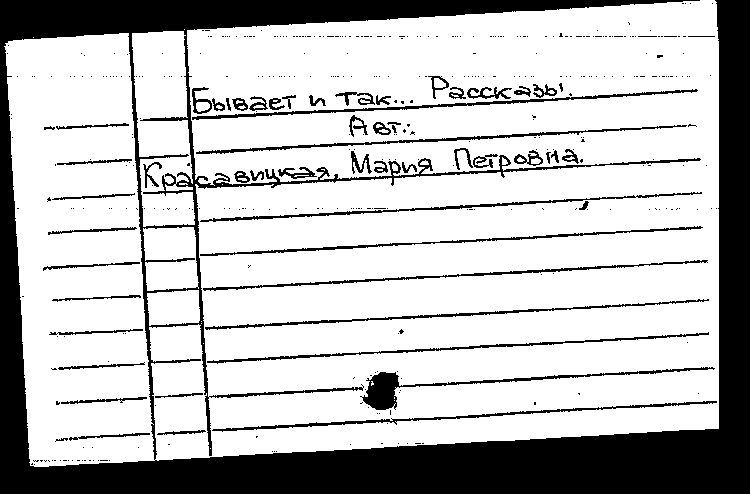 Бывает и так... Рассказы.
Авт.:
Красавицкая, Мария Петровна.